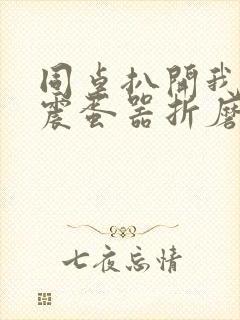 同桌扒開我
震蛋器折磨
七夜忘情